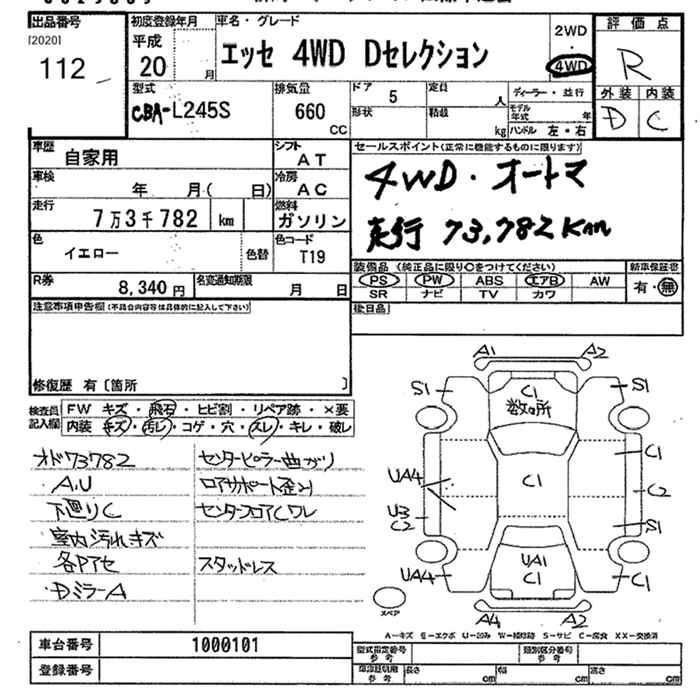 出品番号
[2020]
112
初度登録年月
平成
20 月
車名・グレード
エッセ 4WD Dセレクション
2WD
・
4WD
評価点
R
外装 内装
D C
型式
CBA-L245S
排気量
660
CC
ドア 5
形状
定員 人
積載 kg
ディーラー・並行
モデル年式 年
ハンドル 左・右
車歴
自家用
シフト
AT
車検
年 月( 日)
冷房
AC
走行
7万3千782 km
燃料
ガソリン
色
イエロー
色替
色コード
T19
R券
8,340円
名変通知期限
月 日
セールスポイント(正常に機能するものに限ります)
4WD・オートマ
走行 73,782Km
装備品 (純正品に限り○をつけてください)
PS PW ABS エアB AW
SR ナビ TV カワ
新車保証書
有・無
後日品
注意事項申告欄(不具合内容等は具体的に記入して下さい)
修復歴 有〔箇所 〕
検査員
記入欄
FW キズ・飛石・ヒビ割・リペア跡・×要
内装 キズ・汚レ・コゲ・穴・スレ・キレ・破レ
オド73782
A.U
下廻りC
室内汚れキズ
各Pアセ
DミラーA
センターピラー曲がり
ロアサポート歪み
センターフロアCワレ
スタッドレス
A1 A2
S1 C1 S1
数ヶ所
C1
UA4 C1 C2
U3
C2 S1
UA4 UA1 C1
C1
A4 A2
スペア
A-キズ E-エクボ U-凹み W-補修跡 S-サビ C-腐食 XX-交換済
車台番号
1000101
登録番号
型式指定番号
参考
類別区分番号
参考
長さ cm
幅 cm
高さ cm